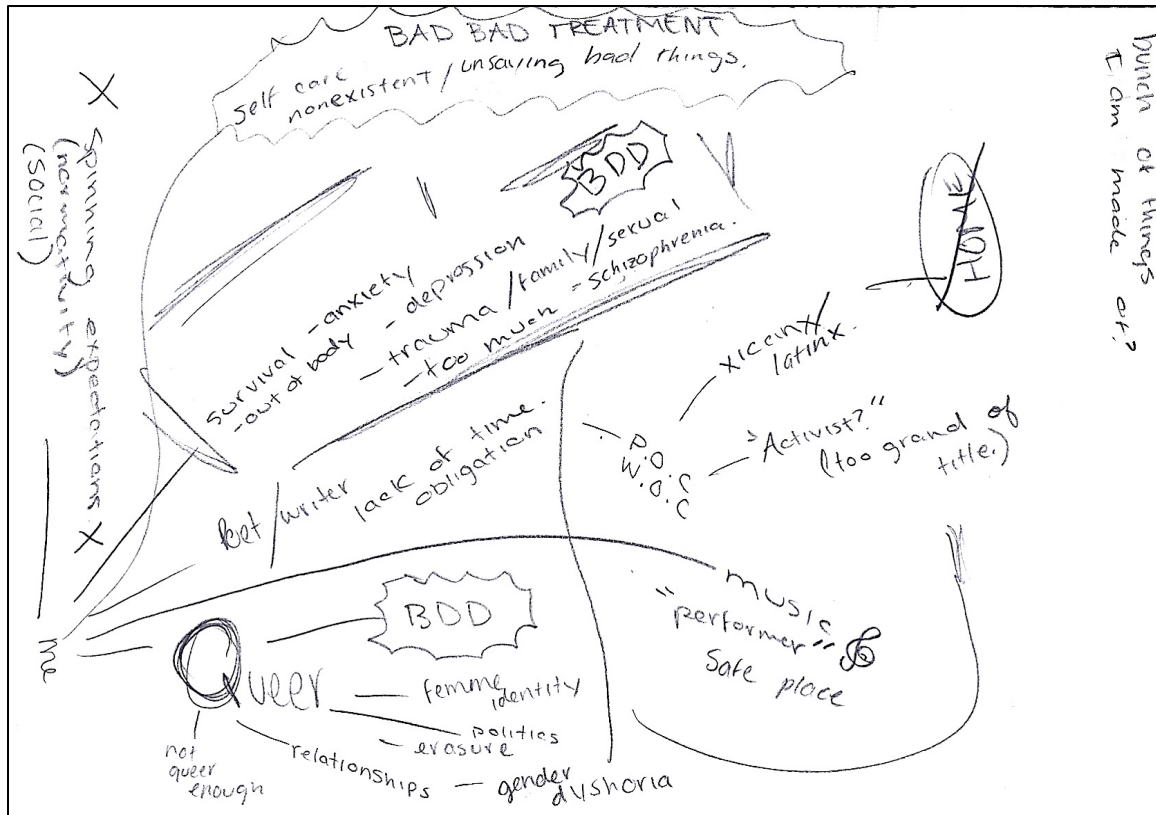 BAD BAD TREATMENT
self care
nonexistent / unsaving bad things.
bunch of things
I am made of?
X spinning expectations X
(normativity)
(social)
BDD
HOME
survival - anxiety
- out of body - depression
- trauma / family / sexual
- too much - schizophrenia.
xicanx/
latinx.
P.O.C
W.O.C
"Activist?"
(too grand of
title.)
Poet/writer
lack of time.
obligation
music
"performer"
Safe place
me
Queer
BDD
femme
identity
politics
- erasure
relationships
gender
dyshoria
not
queer
enough